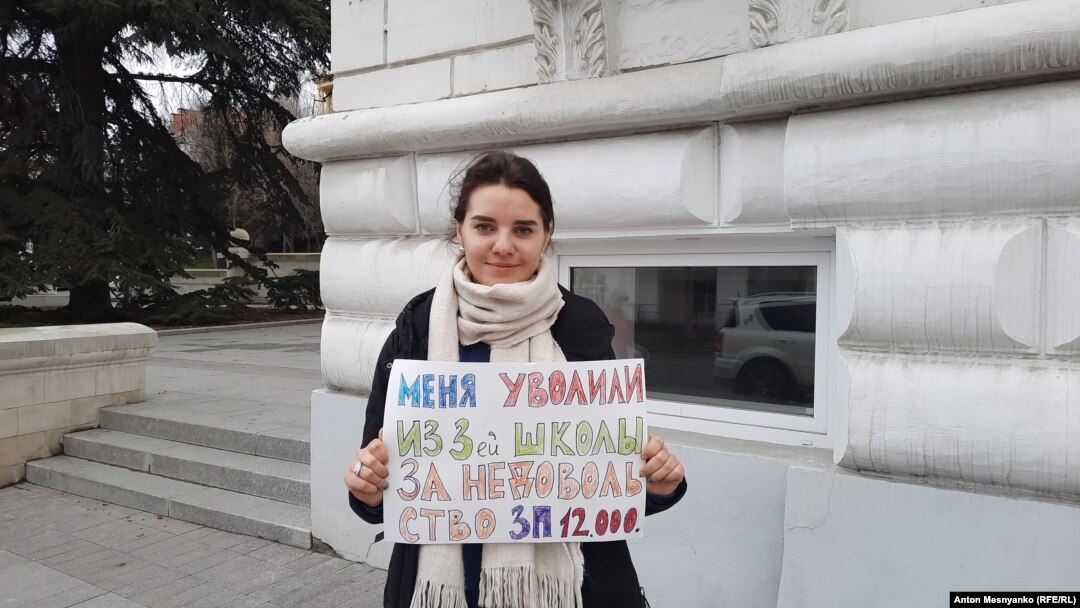 МЕНЯ УВОЛИЛИ
ИЗ 3ей ШКОЛЫ
ЗА НЕДОВОЛЬ
СТВО ЗП 12.000.
Anton Mesnyanko (RFE/RL)